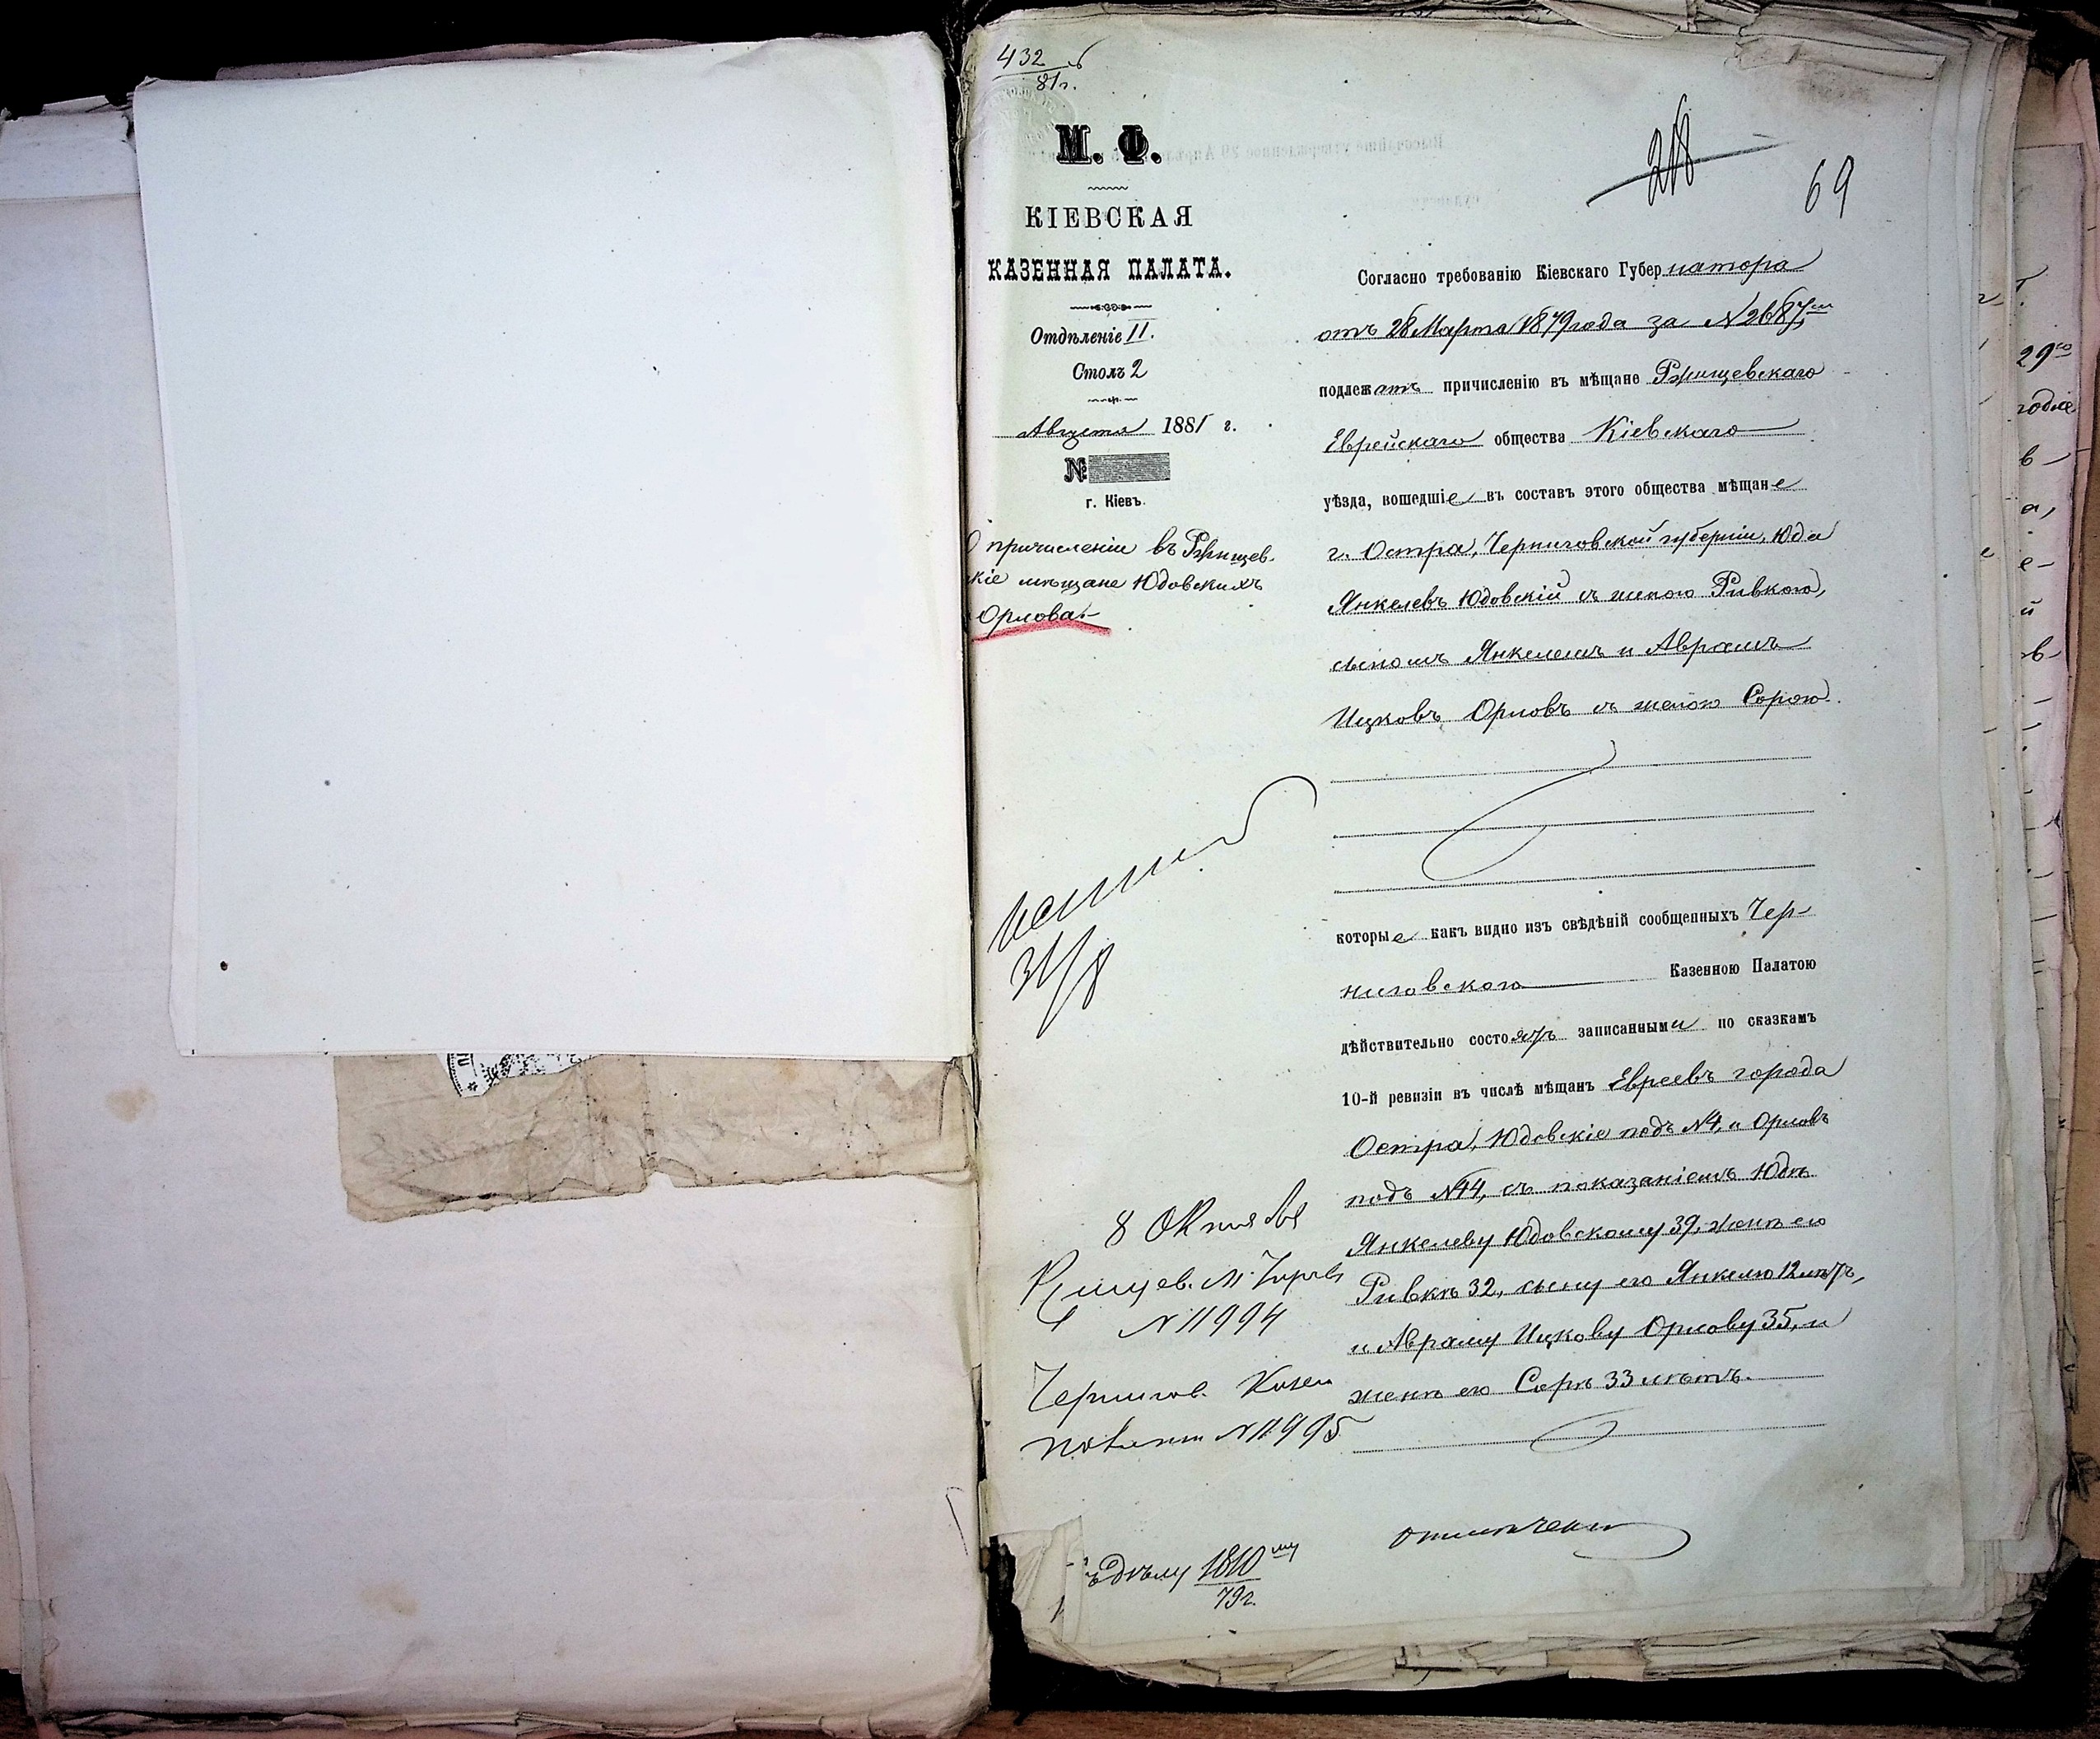 432
81г.
М. Ф.
КІЕВСКАЯ
КАЗЕННАЯ ПАЛАТА.
Отдѣленіе II.
Столъ 2
Августа 1881 г.
№
г. Кіевъ.
О причисленіи въ Ржищев-
скіе мѣщане Юдовскихъ
Орлова.
31/8
8 Октября
Ржищев. М.
N 11994
Чернигов. Казен
N 11995
дѣлу 1810му
79г.
69
Согласно требованію Кіевскаго Губернатора
отъ 28 Марта 1879 года за N 2687мъ
подлежатъ причисленію въ мѣщане Ржищевскаго
Еврейскаго общества Кіевскаго
уѣзда, вошедшіе въ составъ этого общества мѣщане
г. Остра, Черниговской губерніи, Юда
Янкелевъ Юдовскій съ женою Ривкою,
сыномъ Янкелемъ и Аврамъ
Ицковъ Орловъ съ женою Сорою.
которые какъ видно изъ свѣдѣній сообщенныхъ Чер-
ниговскою Казенною Палатою
дѣйствительно состоятъ записанными по сказкамъ
10-й ревизіи въ числѣ мѣщанъ Евреевъ города
Остра, Юдовскіе подъ N4, и Орловъ
подъ N44, съ показаніемъ Юдѣ
Янкелеву Юдовскому 39, женѣ его
Ривкѣ 32, сыну его Янкелю 12 лѣтъ,
и Авраму Ицкову Орлову 35, и
женѣ его Сорѣ 33 лѣтъ.